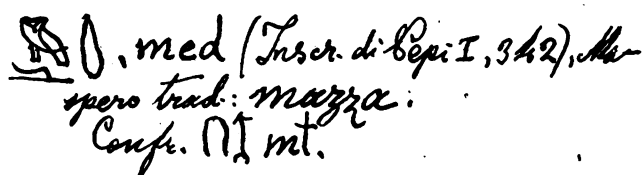 , med (Inscr. di Pepi I, 342), Ma-
spero trad.: mazza.
Confr. mt.